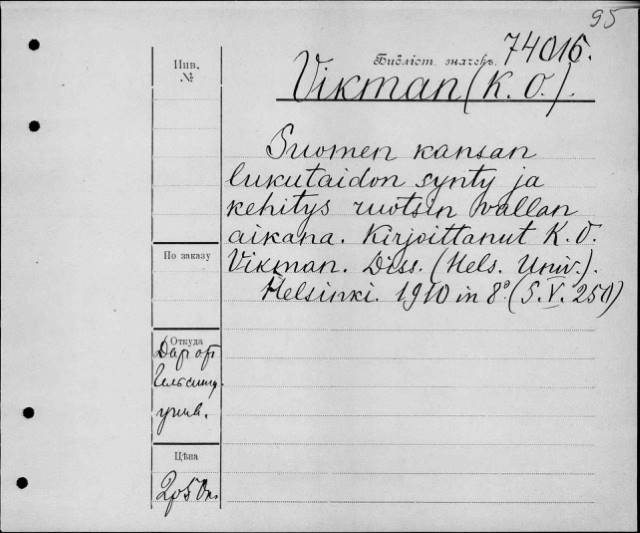 95
74016.
Инв.
№
Библіот. значекъ.
Vikman (K. O.).
Suomen kansan
lukutaidon synty ja
kehitys ruotsin vallan
aikana. Kirjoittanut K. O.
Vikman. Diss. (Hels. Univ.).
Helsinki. 1910 in 8° (S. V. 250)
По заказу
Откуда
Дар от
Гельсингф.
унив.
Цѣна